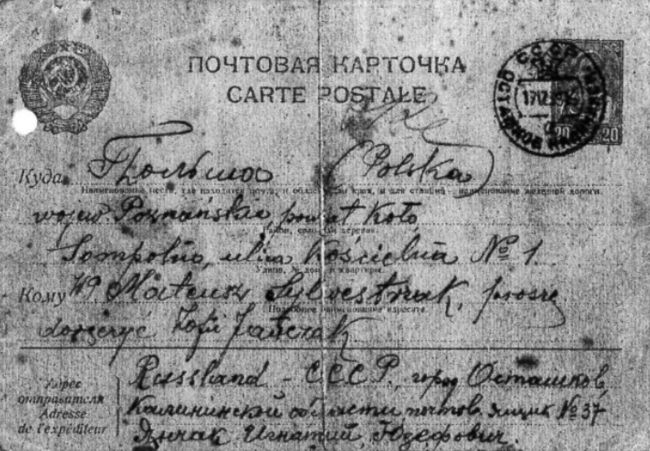 ПОЧТОВАЯ КАРТОЧКА
CARTE POSTALE
СССР
ОСТАШКОВ
20 20
Куда Польша (Polska)
Наименование места, где находится почта, и области или края, а для станций – наименование железной дороги.
wojew. Poznańskie, powiat Koło
Район, село или деревня.
Sompolno, ulica Kościelna № 1.
Улица, № дома и квартиры.
Кому Mateusz Sylvestrzak, proszę
Подробное наименование адресата.
doręczyć Zofji Jańczak
Адрес отправителя
Adresse de l'expéditeur
Russland - С.С.С.Р., город Осташков,
Калининской области почтов. ящик № 37
Янчак Игнатий Юзефович.